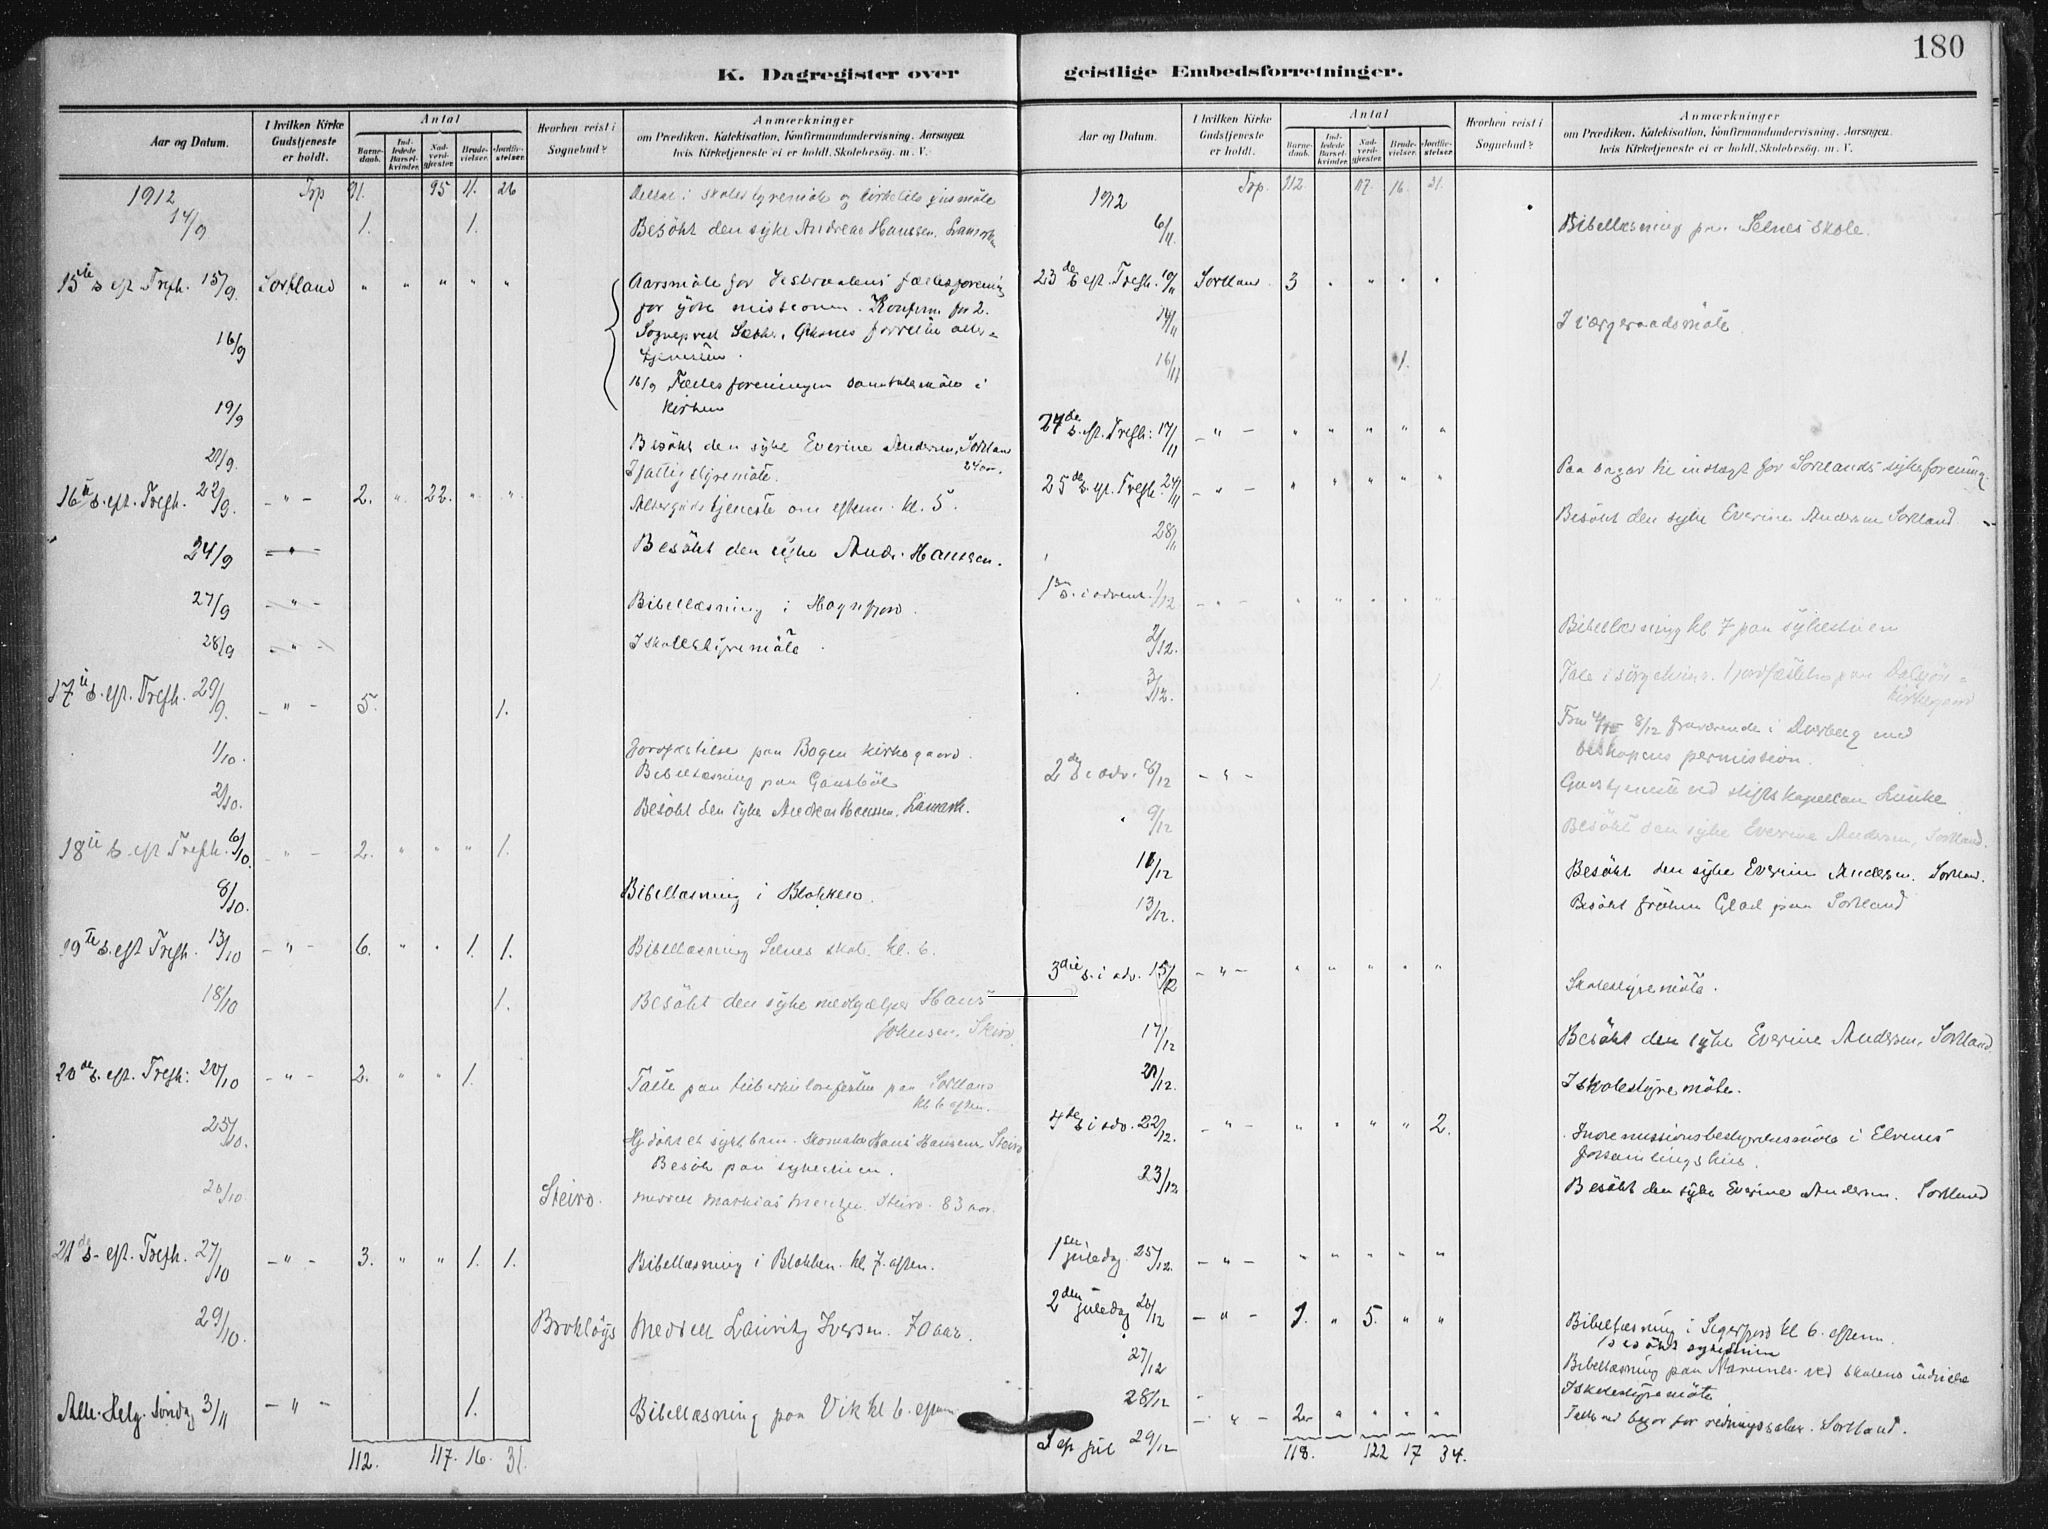 180
K. Dagregister over geistlige Embedsforretninger.
Aar og Datum. I hvilken Kirke Gudstjeneste er holdt. Antal Barnedaab. Indledede Barselkvinder. Nadverdgjester. Brudevielser. Jordfæstelser. Hvorhen reist i Sognebud? Anmærkninger om Prædiken, Katekisation, Konfirmandundervisning, Aarsagen, hvis Kirketjeneste ei er holdt, Skolebesøg, m. V.
1912 Trp 91. 95 11. 26 Deltat i skolestyremöte og
14/9 1. 1. Besökt den syke Andreas Hanssen,
15de s. eft. Trefh. 15/9 Sortland " " " " " Aarsmöte for Vesteraalens fællesforening
for ydre missionen. Konfirm. for 2.
16/9 Sogneprest
tjenesten.
16/9 Fællesforeningen samtalemöte i
19/9 kirken
21/9. Besökt den syke Everine Andersen, Sortland
I fattigstyremöte. 24 aar.
16de s. eft. Trefh. 22/9. - " - 2. " 22. " " Altergudstjeneste om efterm. kl. 5.
24/9 - " - Besökt den syke Andr. Hanssen.
27/9 - " - Bibellæsning i Hognfjord.
28/9 - " - I skolestyremöte.
17de s. eft. Trefh. 29/9. - " - 5. 1.
1/10. Jordfæstelse paa Bogen kirkegaard.
Bibellæsning paa
2/10. Besökt den syke Andreas Hanssen, Lamark.
18de s. eft Trefh. 6/10. - " - 2. " " " 1.
8/10. Bibellæsning i Blokken.
19de s. eft Trefh. 13/10 - " - 6. " " 1. 1. Bibellæsning Selnes skole kl. 6.
18/10 1. Besökt den syke medhjælper Hans
Johnsen, Steiro.
20de s. eft. Trefh: 20/10 - " - 2. " " 1. Talte paa tuberkulosefesten paa Sortland
kl 6 aften.
25/10. Hj.döbt et sykt barn. Skomaker Hans Hansen, Steiro
Besök paa sykestuen.
26/10 Steiro. Meddelt Mathias Mentzen. Steiro. 83 aar.
21de s. eft. Trefh. 27/10 - " - 3. " " 1. 1. Bibellæsning i Blokken. kl. 7. aften.
29/10. Brokløys Meddelt Lauritz Iversen. 70 aar.
Alle. Helg. Søndag 3/11 - " - 1. Bibellæsning paa Vik kl 6. efterm.
112. 117. 16. 31.
Aar og Datum. I hvilken Kirke Gudstjeneste er holdt. Antal Barnedaab. Indledede Barselkvinder. Nadverdgjester. Brudevielser. Jordfæstelser. Hvorhen reist i Sognebud? Anmærkninger om Prædiken, Katekisation, Konfirmandundervisning, Aarsagen, hvis Kirketjeneste ei er holdt, Skolebesøg, m. V.
1912 Trp. 112. 117. 16. 31.
6/11. Bibellæsning paa Selnes skole.
23de s. eft. Trefh. 10/11 Sortland. 3 " " " "
14/11 I værgeraadsmöte.
16/11 1.
24de s. eft. Trefh: 17/11 - " - " " " " "
25de s. eft. Trefh: 24/11 - " - " " " " " Paa basar til indtægt for Sortlands sykeforening.
28/11 Besökt den syke Everine Andersen Sortland.
1ste s. i advent. 1/12 - " - " " " " "
2/12. Bibellæsning kl 7 paa sykestuen
3/12. 1. Tale i sörgehus. Jordfæstelse paa
kirkegaard
Fra 4/12 8/12 fraværende i Dverberg med
biskopens permission.
2de s. i adv. 8/12 - " - Gudstjeneste ved stiftskapellan
9/12 Besökt den syke Everine Andersen, Sortland.
11/12 Besökt den syke Everine Andersen. Sortland.
13/12. Besökt fröken Glad paa Sortland
3die s. i adv. 15/12 - " - " " " " " Skolestyremöte.
17/12 Besökt den syke Everine Andersen, Sortland
21/12. I skolestyremöte.
4de s i adv. 22/12. - " - " " " " 2. Indremissionsbestyrelsesmöte i Elvenes
forsamlingshus.
23/12 Besökt den syke Everine Andersen. Sortland
1ste juledag. 25/12. - " - " " " " "
2den juledag 26/12 - " - 1. " 5. " " Bibellæsning i Sigerfjord kl 6. efterm.
Besökt sykestuen
27/12 Bibellæsning paa
28/12 I skolestyremöte
- " - 2. " " " " Talte ved basar for redningssaken. Sortland.
S. ef jul 29/12 118. 122 17 34.